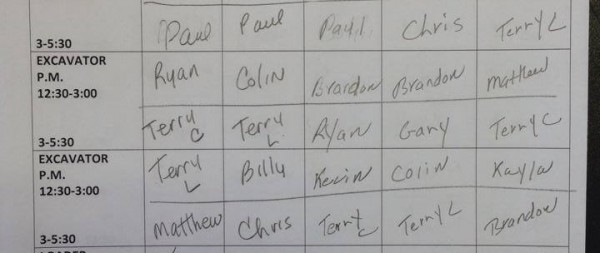 3-5:30 Paul Paul Paul Chris Terry L
EXCAVATOR
P.M.
12:30-3:00 Ryan Colin Brandon Brandon Matthew
3-5:30 Terry C Terry L Ryan Gary Terry C
EXCAVATOR
P.M.
12:30-3:00 Terry L Billy Kevin Colin Kayla
3-5:30 Matthew Chris Terry C Terry L Brandon